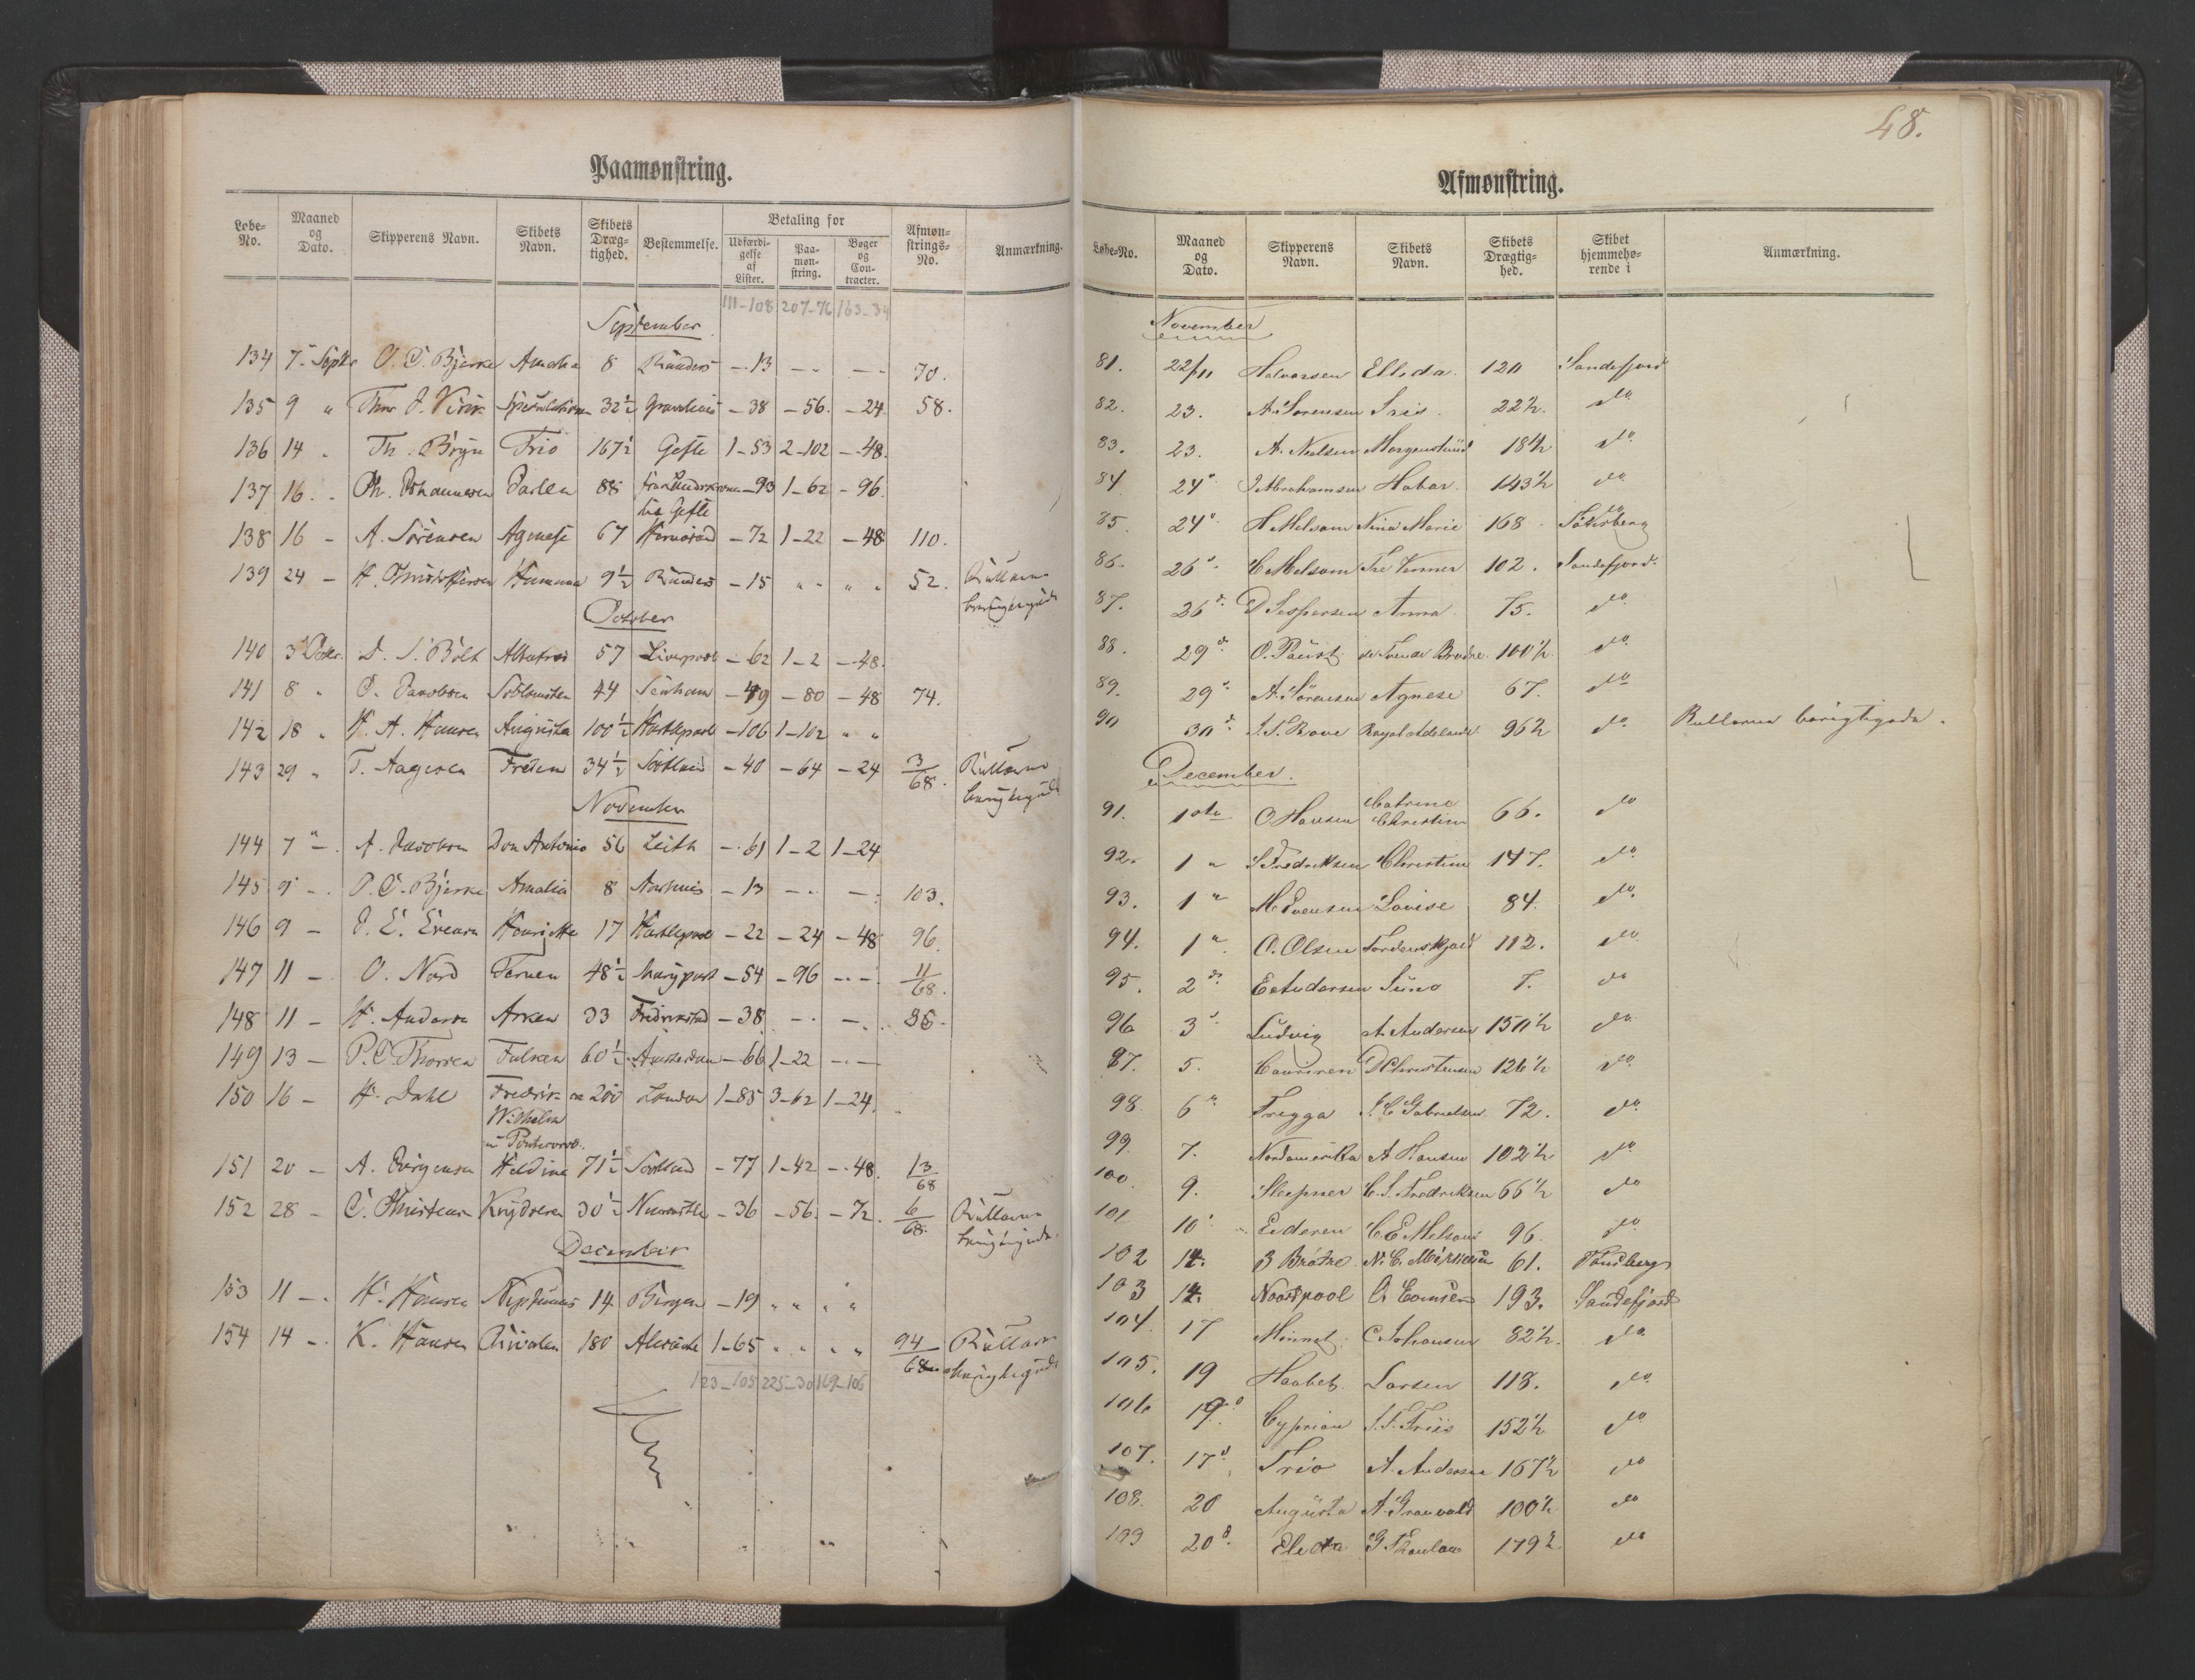 Paamønstring.
Løbe-No. Maaned og Dato. Skipperens Navn. Skibets Navn. Skibets Dræg-tighed. Bestemmelse. Betaling for Udfærdi-gelse af Lister. Paa-møn-string. Bøger og Con-tracter. Afmøn-strings-No. Anmærkning.
111-108 207-76 163-34
September
134 7 Septbr O. C. Bjerke Amalia 8 Randers - 13 - - 70.
135 9 " Thor J. Virik Speculation 32½ - 38 - 56 - 24 58.
136 14 " Th. Bryn Trio 167½ Gefle 1-53 2-102 - 48.
137 16 " Joh. Johannesen Parlen 88 fra til Gefle - 93 1-62 - 96.
138 16 - A. Sörensen Agnese 67 Hernösand - 72 1-22 - 48 110.
139 24 - H. Christoffersen Hummer 9½ Randers - 15 " " " " 52. Rullerne
October
140 3 Octbr. D. S. Bolt Albatros 57 Liverpool - 62 1-2 - 48.
141 8 " C. Jacobsen 44 Seaham - 49 - 80 - 48 74.
142 18 " H. A. Hansen Augusta 100½ Hartlepool - 106 1-102 " "
143 29 " T. Aagesen Freden 34½ Scotland - 40 - 64 - 24 3/68. Rullerne
November
144 7 " - A. Jacobsen Don Antonio 56 Leith - 61 1-2 1-24
145 9 - O. C. Bjerke Amalia 8 Aarhuus - 13 - - 103.
146 9 - J. E. Evensen Henriette 17 Hartlepool - 22 - 24 - 48 96.
147 11 - O. Nord Ternen 48½ Maryport - 54 - 96 - - 11/68.
148 11 - H. Andersen Arken 33 Fredrikstad - 38 - - 86.
149 13 - P. C. Thorsen Falken 60½ Amsterdam - 66 1-22 - -
150 16 - H. Dahl Fredrik Wilhelm 200 London 1-85 3-62 1-24.
151 20 - A. Jörgensen Heldine 71½ Scotland - 77 1-42 - 48. 13/68
152 28 - C. Christensen Krydseren 30½ Newcastle - 36 - 56 - 72. 6/68. Rullerne
December
153 11 - H. Hansen Neptunus 14 Bergen - 19 " " " "
154 14 - K. Hansen Rivalen 180 Alicante 1-65 " " " " 94/68 Rullerne
123-105 225-30 169-106
48.
Afmønstring.
Løbe-No. Maaned og Dato. Skipperens Navn. Skibets Navn. Skibets Drægtig-hed. Skibet hjemmehø-rende i Anmærkning.
November
81. 22/11 Halvorsen Ellida 120 Sandefjord
82. 23. A. Sorensen Iris 22½. do
83. 23. A. Nielsen Morgenstund 18½ do
84 24 J Abrahamsen Habor 143½ do
85. 24 H Melsom Nina Marie 168
86. 26 C Melsom Tre Venner 102. Sandefjord.
87. 26 D Jespersen Anna 75. do
88. 29 O. Paust de Tvende Brødre 100½ do
89. 29 A. Sörensen Agnese 67. do
90 30 J. S. Rove Royal Adelaide 96½ do Rullerne berigtigede.
December.
91. 1ste O Hansen Catrine Christine 66. do
92. 1 " S Fredriksen Christine 147. do
93. 1 " M Evensen Lovise 84. do
94. 1 " O. Olsen Tordenskjold 112. do
95. 2 E Andersen Juno 7. do
96 3 Ludvig A Andersen 150½ do
97. 5. D Christensen 126½ do
98. 6 Fregga J. C Gabrielsen 72. do
99. 7. Nordamerika A Hansen 102½ do
100. 9. Sleipner C. S. Fredriksen 66½ do
101 10 Ederen C E Melsom 96. do
102 14. 3 Brødre N. C. Mikkelsen 61. Tönsberg
103 14. Noordpool O. Evensen 193. Sandefjord
104. 17 Minnet. C. Johansen 82½. do
105. 19 Haabet. Larsen 118. do
106 19 Cyprian J. F. Friis 152½ do
107. 17 Trio A. Andersen 167½ do
108. 20 Augusta A. Grønvold 100½ do
109 20 Electra G. Thaulow 179½ do